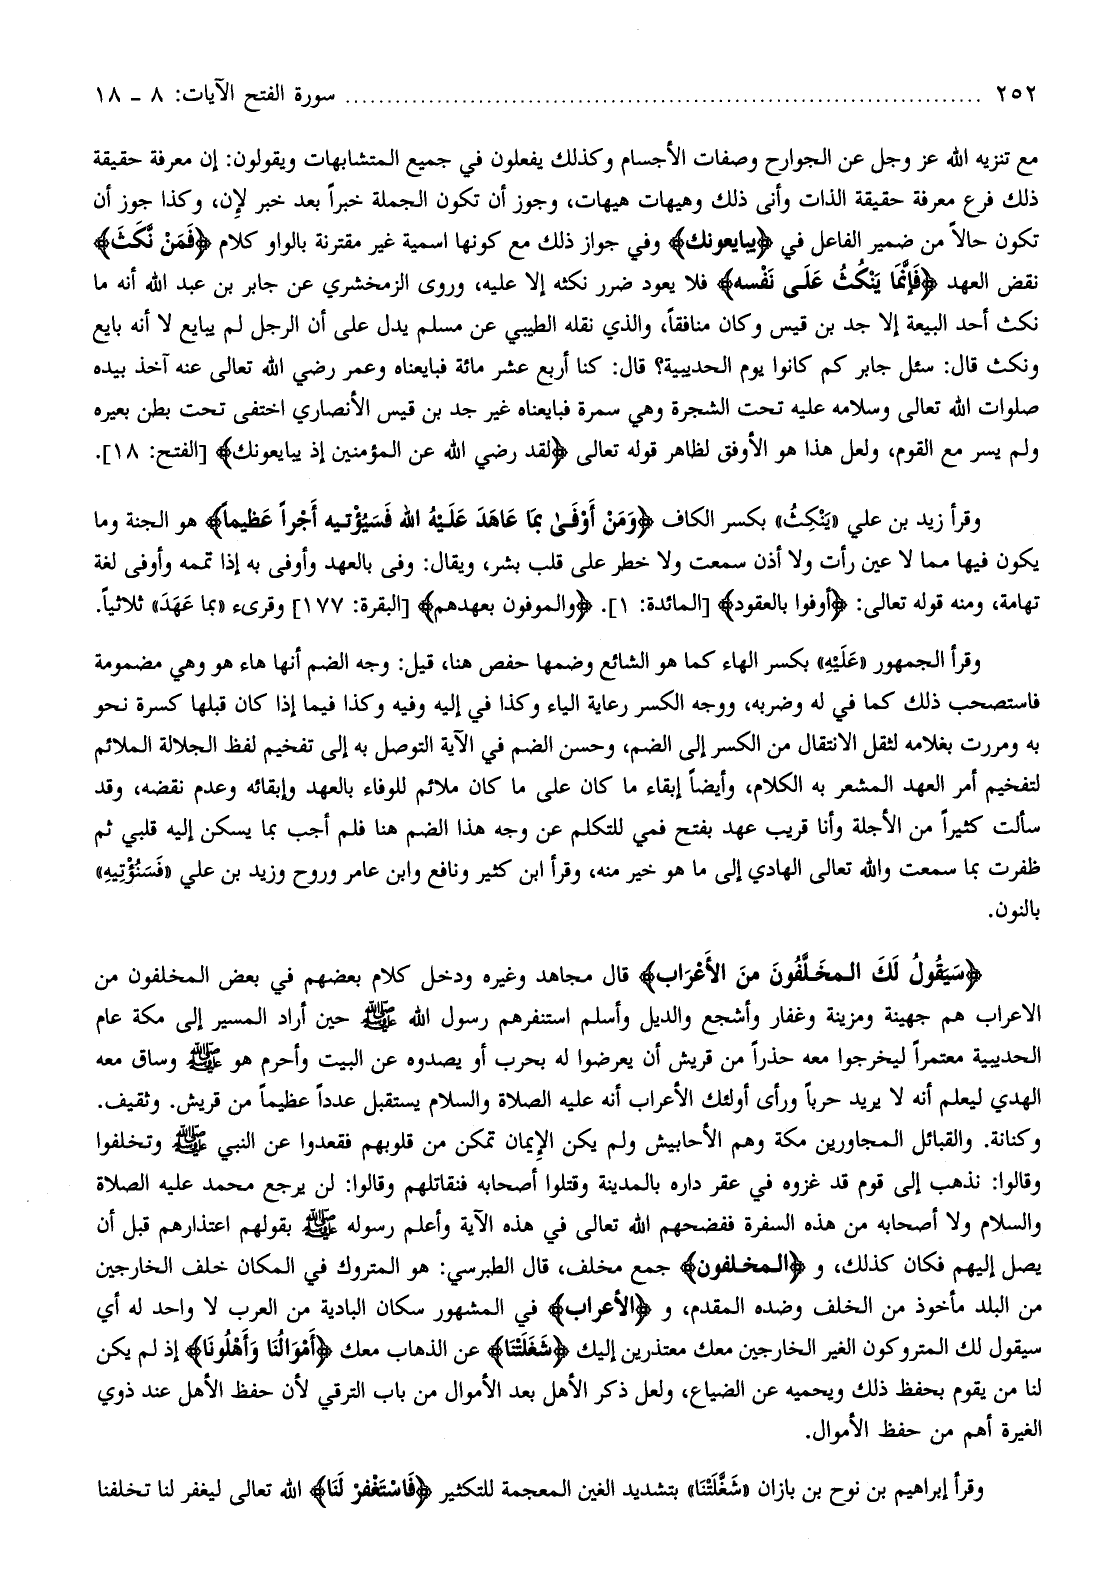 ٢٥٢ ........................................................................ سورة الفتح الآيات: ٨ - ١٨
مع تنزيه الله عز وجل عن الجوارح وصفات الأجسام وكذلك يفعلون في جميع المتشابهات ويقولون: إن معرفة حقيقة
ذلك فرع معرفة حقيقة الذات وأنى ذلك وهيهات هيهات، وجوز أن تكون الجملة خبراً بعد خبر لإن، وكذا جوز أن
تكون حالاً من ضمير الفاعل في ﴿يبايعونك﴾ وفي جواز ذلك مع كونها اسمية غير مقترنة بالواو كلام ﴿فَمَنْ نَّكَثَ﴾
نقض العهد ﴿فَإِنَّمَا يَنْكُثُ عَلَى نَفْسه﴾ فلا يعود ضرر نكثه إلا عليه، وروى الزمخشري عن جابر بن عبد الله أنه ما
نكث أحد البيعة إلا جد بن قيس وكان منافقاً، والذي نقله الطيبي عن مسلم يدل على أن الرجل لم يبايع لا أنه بايع
ونكث قال: سئل جابر كم كانوا يوم الحديبية؟ قال: كنا أربع عشر مائة فبايعناه وعمر رضي الله تعالى عنه آخذ بيده
صلوات الله تعالى وسلامه عليه تحت الشجرة وهي سمرة فبايعناه غير جد بن قيس الأنصاري اختفى تحت بطن بعيره
ولم يسر مع القوم، ولعل هذا هو الأوفق لظاهر قوله تعالى ﴿لقد رضي الله عن المؤمنين إذ يبايعونك﴾ [الفتح: ١٨].
وقرأ زيد بن علي «يَنْكِثُ» بكسر الكاف ﴿وَمَنْ أَوْفَىٰ بِمَا عَاهَدَ عَلَيْهُ الله فَسَيُؤْتيه أَجْراً عَظيماً﴾ هو الجنة وما
يكون فيها مما لا عين رأت ولا أذن سمعت ولا خطر على قلب بشر، ويقال: وفى بالعهد وأوفى به إذا تممه وأوفى لغة
تهامة، ومنه قوله تعالى: ﴿أوفوا بالعقود﴾ [المائدة: ١]. ﴿والموفون بعهدهم﴾ [البقرة: ١٧٧] وقرىء «بما عَهَدَ» ثلاثياً.
وقرأ الجمهور «عَلَيْهِ» بكسر الهاء كما هو الشائع وضمها حفص هنا، قيل: وجه الضم أنها هاء هو وهي مضمومة
فاستصحب ذلك كما في له وضربه، ووجه الكسر رعاية الياء وكذا في إليه وفيه وكذا فيما إذا كان قبلها كسرة نحو
به ومررت بغلامه لثقل الانتقال من الكسر إلى الضم، وحسن الضم في الآية التوصل به إلى تفخيم لفظ الجلالة الملائم
لتفخيم أمر العهد المشعر به الكلام، وأيضاً إبقاء ما كان على ما كان ملائم للوفاء بالعهد وإبقائه وعدم نقضه، وقد
سألت كثيراً من الأجلة وأنا قريب عهد بفتح فمي للتكلم عن وجه هذا الضم هنا فلم أجب بما يسكن إليه قلبي ثم
ظفرت بما سمعت والله تعالى الهادي إلى ما هو خير منه، وقرأ ابن كثير ونافع وابن عامر وروح وزيد بن علي «فَسَنُؤْتِيهِ»
بالنون.
﴿سَيَقُولُ لَكَ الـمخَلَّفُونَ منَ الأَعْرَاب﴾ قال مجاهد وغيره ودخل كلام بعضهم في بعض المخلفون من
الاعراب هم جهينة ومزينة وغفار وأشجع والديل وأسلم استنفرهم رسول الله ﷺ حين أراد المسير إلى مكة عام
الحديبية معتمراً ليخرجوا معه حذراً من قريش أن يعرضوا له بحرب أو يصدوه عن البيت وأحرم هو ﷺ وساق معه
الهدي ليعلم أنه لا يريد حرباً ورأى أولئك الأعراب أنه عليه الصلاة والسلام يستقبل عدداً عظيماً من قريش. وثقيف.
وكنانة. والقبائل المجاورين مكة وهم الأحابيش ولم يكن الإيمان تمكن من قلوبهم فقعدوا عن النبي ﷺ وتخلفوا
وقالوا: نذهب إلى قوم قد غزوه في عقر داره بالمدينة وقتلوا أصحابه فنقاتلهم وقالوا: لن يرجع محمد عليه الصلاة
والسلام ولا أصحابه من هذه السفرة ففضحهم الله تعالى في هذه الآية وأعلم رسوله ﷺ بقولهم اعتذارهم قبل أن
يصل إليهم فكان كذلك، و ﴿الـمخلفون﴾ جمع مخلف، قال الطبرسي: هو المتروك في المكان خلف الخارجين
من البلد مأخوذ من الخلف وضده المقدم، و ﴿الأعراب﴾ في المشهور سكان البادية من العرب لا واحد له أي
سيقول لك المتروكون الغير الخارجين معك معتذرين إليك ﴿شَغَلَتْنَا﴾ عن الذهاب معك ﴿أَمْوَالُنَا وَأَهْلُونَا﴾ إذ لم يكن
لنا من يقوم بحفظ ذلك ويحميه عن الضياع، ولعل ذكر الأهل بعد الأموال من باب الترقي لأن حفظ الأهل عند ذوي
الغيرة أهم من حفظ الأموال.
وقرأ إبراهيم بن نوح بن بازان «شَغَّلَتْنَا» بتشديد الغين المعجمة للتكثير ﴿فَاسْتَغْفرْ لَنَا﴾ الله تعالى ليغفر لنا تخلفنا